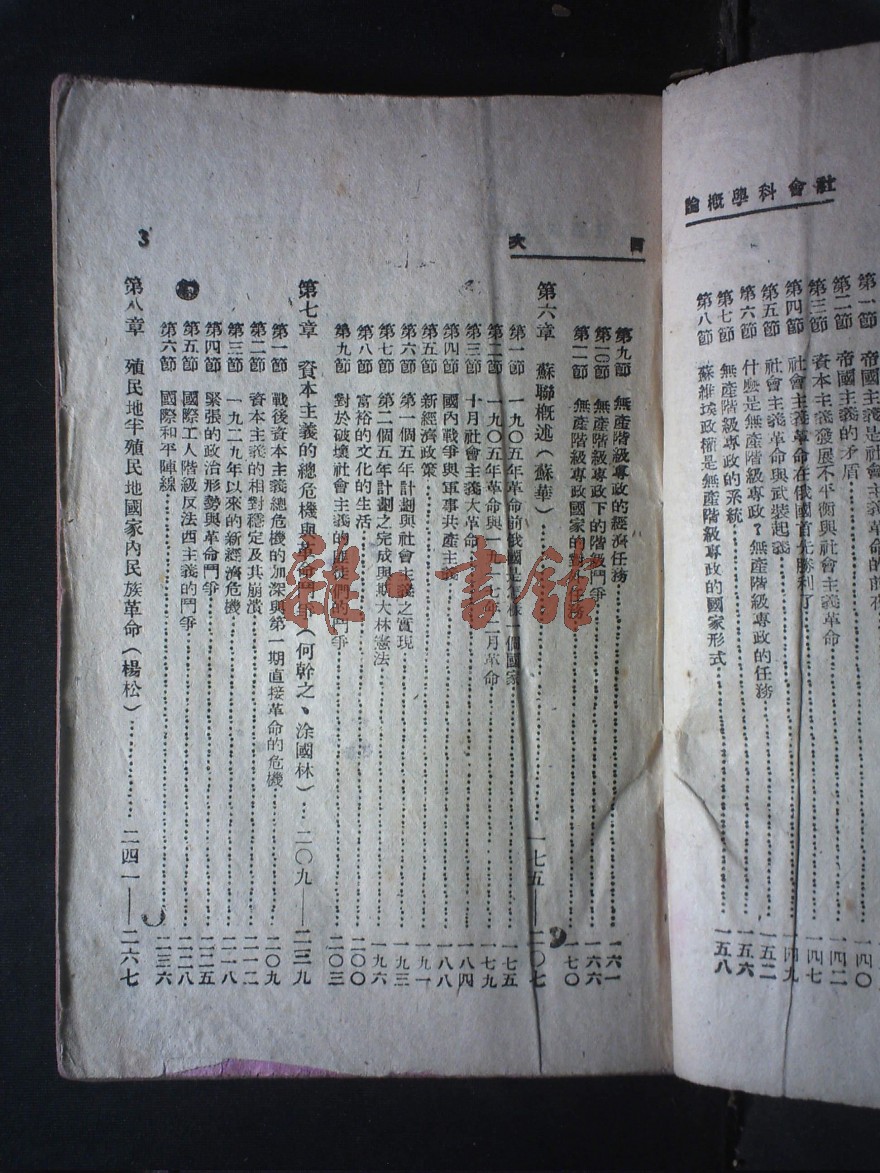 社會科學概論
第一節 帝國主義是社會主義革命的前
第二節 帝國主義的矛盾 一四〇
第三節 資本主義發展不平衡與社會主義革命 一四二
第四節 社會主義革命在俄國首先勝利了 一四七
第五節 社會主義革命與武裝起義 一四九
第六節 什麼是無產階級專政?無產階級專政的任務 一五二
第七節 無產階級專政的系統 一五六
第八節 蘇維埃政權是無產階級專政的國家形式 一五八
目次
第九節 無產階級專政的經濟任務 一六一
第一〇節 無產階級專政下的階級鬥爭 一六六
第一一節 無產階級專政國家的對外任務 一七〇
第六章 蘇聯概述(蘇華) 一七五——二〇七
第一節 一九〇五年革命前俄國是怎樣一個國家 一七五
第二節 一九〇五年革命與一九一七年二月革命 一七九
第三節 十月社會主義大革命 一八四
第四節 國內戰爭與軍事共產主義 一八八
第五節 新經濟政策 一九一
第六節 第一個五年計劃與社會主義之實現 一九三
第七節 第二個五年計劃之完成與斯大林憲法 一九六
第八節 富裕的文化的生活 二〇〇
第九節 對於破壞社會主義的匪徒們的鬥爭 二〇三
第七章 資本主義的總危機與革命鬥爭(何幹之、涂國林) 二〇九——二三九
第一節 戰後資本主義總危機的加深與第一期直接革命的危機 二〇九
第二節 資本主義的相對穩定及其崩潰 二一二
第三節 一九二九年以來的新經濟危機 二一八
第四節 緊張的政治形勢與革命鬥爭 二二五
第五節 國際工人階級反法西主義的鬥爭 二二八
第六節 國際和平陣線 二三六
第八章 殖民地半殖民地國家內民族革命(楊松) 二四一——二六七
3
雜·書館